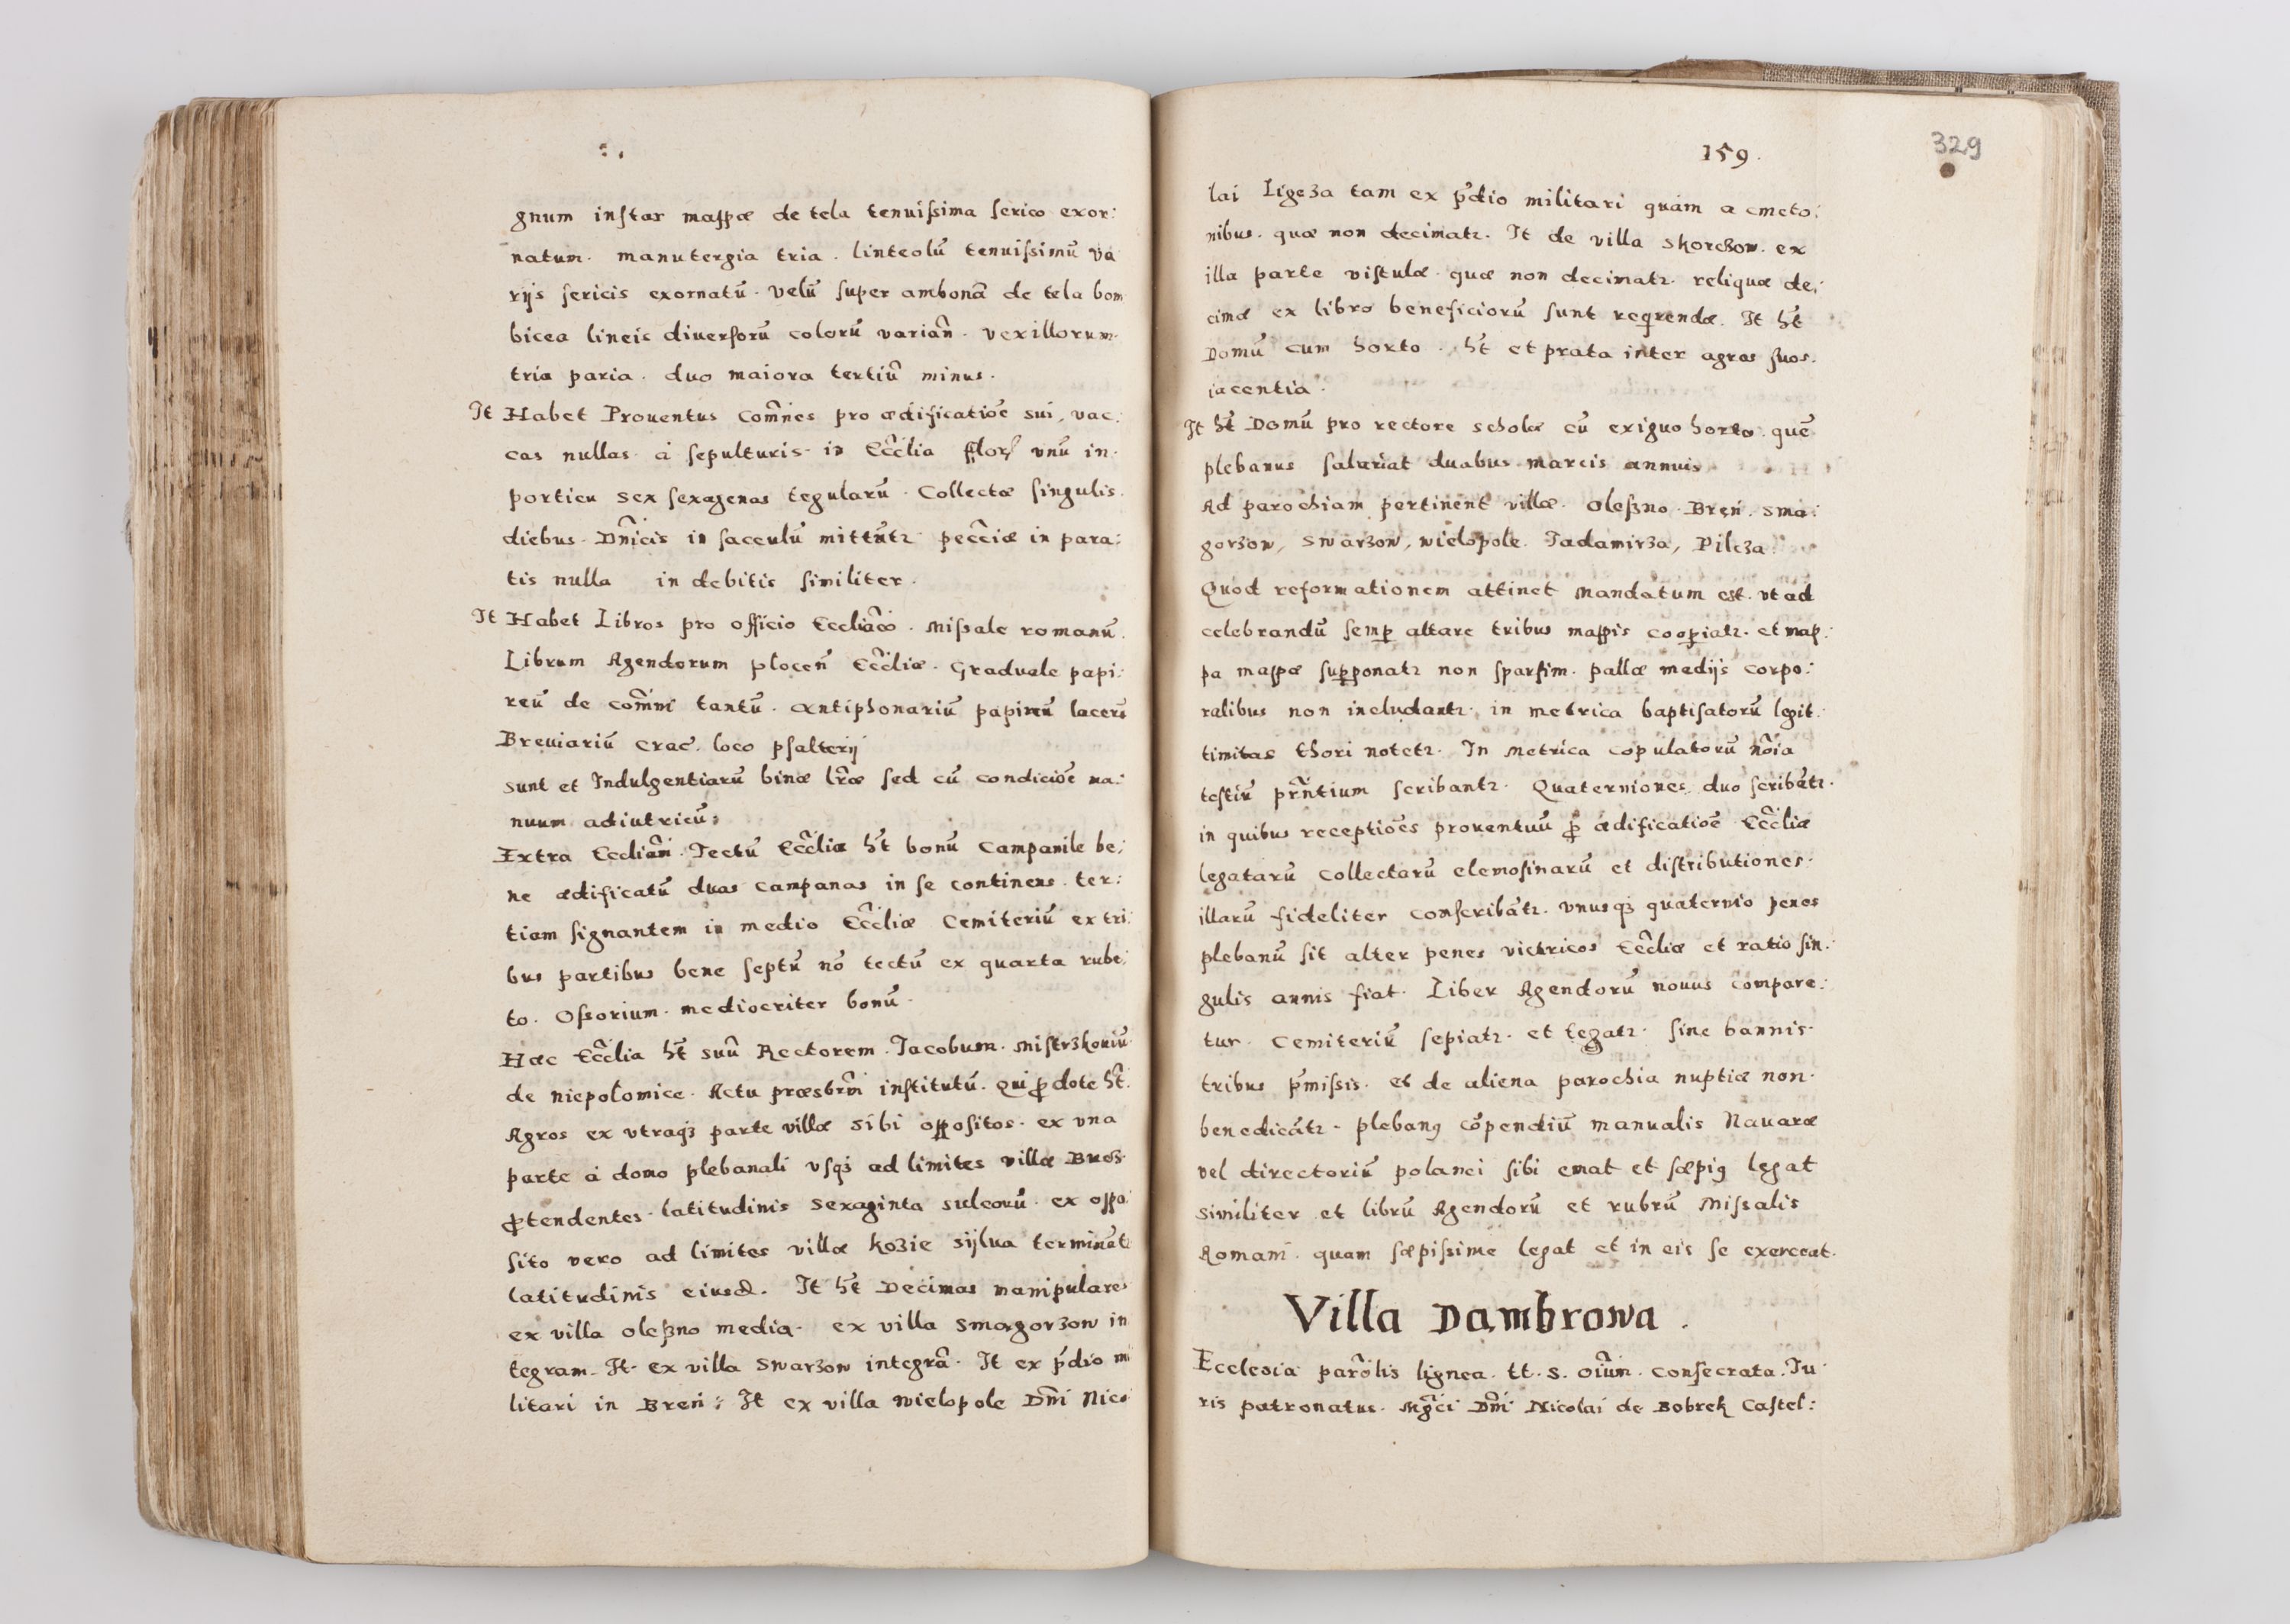 gnum inſtar mappæ de tela tenuiſsima ſerico exor:
natum. manutergia tria. linteolū tenuiſsimū va
rijs ſericis exornatū. velū ſuper ambonā de tela bom
bicea lineis diuerſorū colorū varian̄. vexillorum.
tria paria. duo maiora tertiū minus.
It Habet Prouentus com̄nes pro ædificatiōe sui, vac:
cas nullas. à ſepulturis in Ecc̄lia vnū in.
porticu sex ſexagenas tegularū. Collectæ ſingulis.
diebus. Dn̄icis in ſacculū mittūtr pecc̄iæ in para:
tis nulla in debitis ſimiliter.
It Habet Libros pro officio Eccliāco. Miſsale romanū.
Librum Agendorum plocen̄ Ecc̄liæ. Graduale papi:
reū de com̄ni tantū. antiphonariū papireū lacerū
Breuiariū Crac̄. loco pſalterij
sunt et Indulgentiarū binæ lr̄æ ſed cū condiciōe ma:
nuum adiutricū:
Extra Eccliam̄. Tectū Ecc̄lia ht̄ bonū Campanile be:
ne ædificatū duas campanas in ſe continens. ter:
tiam ſignantem in medio Ecc̄liæ Cemiteriū ex tri:
bus partibus bene ſeptū nō tectū ex quarta rube:
to. Oſsorium. mediocriter bonū.
Hæc Ecc̄lia ht̄ suū Rectorem. Jacobum. Miſtrzkouiū
de niepolomice. Actu præsbrm̄ inſtitutū. Qui ꝓ dote ht̄.
Agros ex vtraqꝫ parte villæ sibi oppoſitos. ex vna
parte à domo plebanali vſqꝫ ad limites villæ
ꝓtendentes. latitudinis sexaginta sulcorū. ex oppo
ſito vero ad limites villæ kozie sijlua terminat
latitudinis eiusd. It ht̄ Decimas manipulares
ex villa oleßno media. ex villa Smagorzow in
tegram. It. ex villa Swarzow integrā. It ex p̄dio mi
litari in Breń: It ex villa wielopole Dn̄i Nico
159.
329
lai Ligęza tam ex p̄dio militari quàm a cmeto:
nibus. quæ non decimatr. It de villa Skorchow. ex
illa parte viſtulæ. quæ non decimatr. reliquæ de:
cimæ ex libro beneficiorū ſunt reqrendæ. It ht̄
Domū cum horto. ht̄ et prata inter agros ſuos.
iacentia.
It ht̄ Domū pro rectore scholæ cū exiguo horto. quē
plebanus ſalariat duabus marcis annuis
Ad parochiam pertinent villæ. Oleßno. Breń. Sma:
gorzow, Swarzow, wielopole. Jadamirza, Pilcza.
Quod reformationem attinet Mandatum est. vt ad
celebrandū ſemꝑ altare tribus mappis cooꝑiatr. et map:
pa mappæ ſupponatr non ſparſim. pallæ medijs corpo:
ralibus non includantr. in metrica baptiſatorū legit:
timitas thori notetr. In Metrica copulatorū nōia
teſtiū prn̄tium ſcribantr. Quaterniones duo ſcribātr.
in quibus receptiōes prouentuū ꝓ ædificatiōe Ecc̄liæ
legatarū Collectarū elemoſinarū et diſtributiones.
illarū fideliter conſcribātr. vnusqꝫ quaternio penes
plebanū ſit alter penes victricos Ecc̄liæ et ratio ſin:
gulis annis fiat. Liber Agendorū nouus compare:
tur. Cemiteriū ſepiatr. et tegatr. ſine bannis.
tribus p̄miſsis. et de aliena parochia nuptiæ non.
benedicātr. plebanꝰ cōpendiū manualis Nauaræ
vel directoriū polanci ſibi emat et ſæpiꝰ legat
similiter et librū Agendorū et rubrū Miſsalis
Romani. quam ſæpiſsime legat et in eis ſe exerceat.
Villa Dambrowa.
Ecclesia parōlis lignea. tt. S. Oium̄. conſecrata. Ju
ris patronatus. Mgc̄i Dn̄i Nicolai de Bobrek Caſtel: